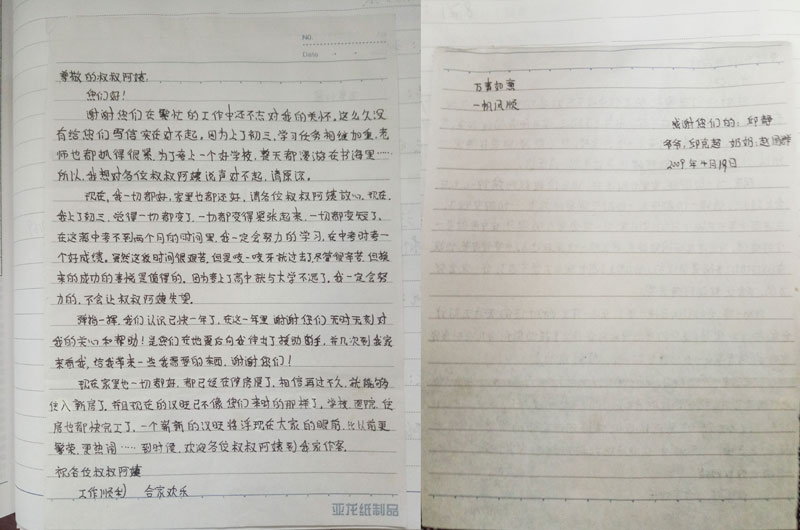 No.
Date
尊敬的叔叔阿姨
您们好!
谢谢您们在繁忙的工作中还不忘对我的关怀.这么久没
有给您们写信实在对不起。因为上了初三,学习任务相继加重,老
师也都抓得很紧.为了考上一个好学校,整天都漫游在书海里……
所以,我想对各位叔叔阿姨说声对不起,请原谅。
现在,我一切都好,家里也都还好,请各位叔叔阿姨放心.现在,
我上了初三,觉得一切都变了,一切都变得紧张起来,一切都变短了。
在这离中考不到两个月的时间里,我一定会努力的学习,在中考时考一
个好成绩。虽然这段时间很艰苦,但是咬一咬牙就过去了.尽管很辛苦,但换
来的成功的喜悦是值得的。因为考上了高中就与大学不远了,我一定会努
力的,不会让叔叔阿姨失望.
弹指一挥,我们认识已快一年了,在这一年里,谢谢您们无时无刻对
我的关心和帮助!是您们在地震后向我伸出了援助之手,并几次到我家
来看我,给我带来一些我需要的东西,谢谢您们!
现在家里也一切都好,都已经在修房屋了,相信再过不久,就能够
住入新房了,并且现在的汉旺已不像您们来时的那样了,学校、医院、住
房也都快完工了,一个崭新的汉旺将浮现在大家的眼前,比从前更
繁荣,更热闹……到时候,欢迎各位叔叔阿姨到我家作客.
祝各位叔叔阿姨
工作顺利 合家欢乐
亚龙纸制品
万事如意
一帆风顺
感谢您们的: 邱静
爷爷:邱克超 奶奶:赵
2009年4月19日